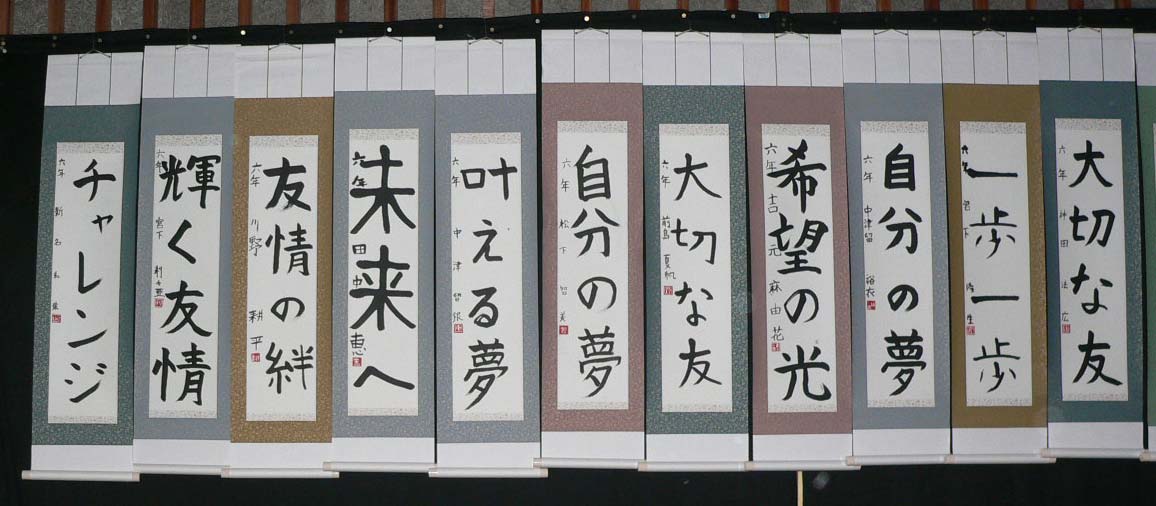 大切な友
六年 神田 広
一歩一歩
六年 宮下 生
自分の夢
六年 中津留 裕衣
希望の光
六年 吉元 麻由花
大切な友
六年 前島 夏帆
自分の夢
六年 松下 智美
叶える夢
六年 中津留
未来へ
六年 田中 恵
友情の絆
六年 川野 耕平
輝く友情
六年 宮下
チャレンジ
六年 新名